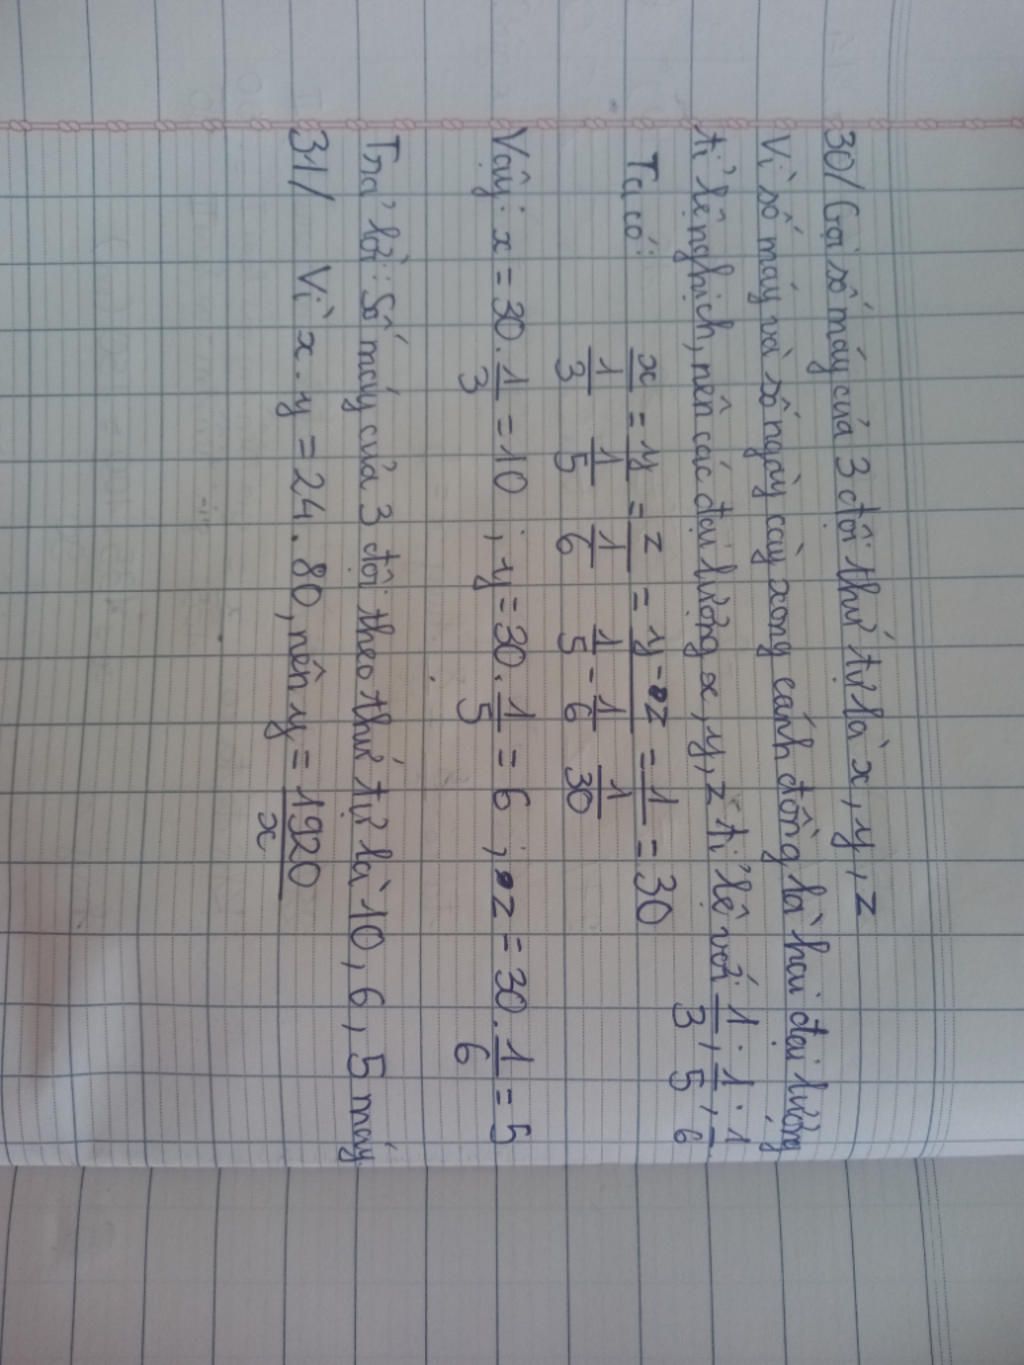 30/ Gọi số máy của 3 đội thứ tự là x, y, z
Vì số máy và số ngày cày xong cánh đồng là hai đại lượng
tỉ lệ nghịch, nên các đại lượng x, y, z tỉ lệ với 1/3 ; 1/5 ; 1/6
Ta có: x/(1/3) = y/(1/5) = z/(1/6) = (y - z)/(1/5 - 1/6) = 1/(1/30) = 30
Vậy: x = 30 . 1/3 = 10 ; y = 30 . 1/5 = 6 ; z = 30 . 1/6 = 5
Trả lời: Số máy của 3 đội theo thứ tự là 10, 6, 5 máy
31/ Vì x . y = 24 . 80, nên y = 1920/x